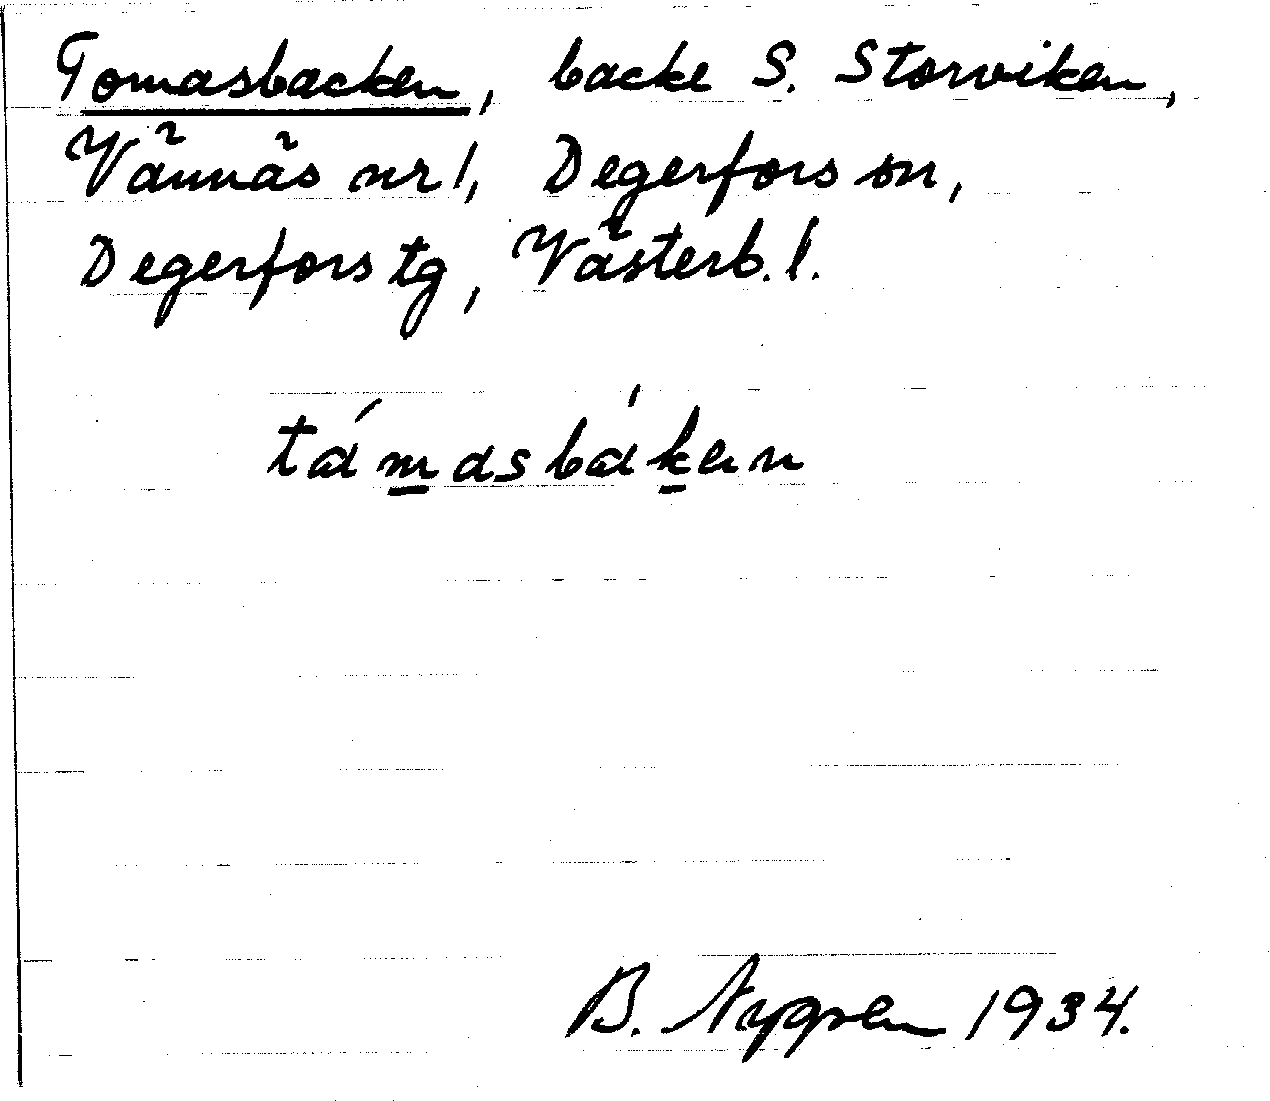 Tomasbacken, backe S. Storviken,
Vännäs nr 1, Degerfors sn,
Degerfors tg, Västerb. l.
támasbákȧn
B. Nygren 1934.